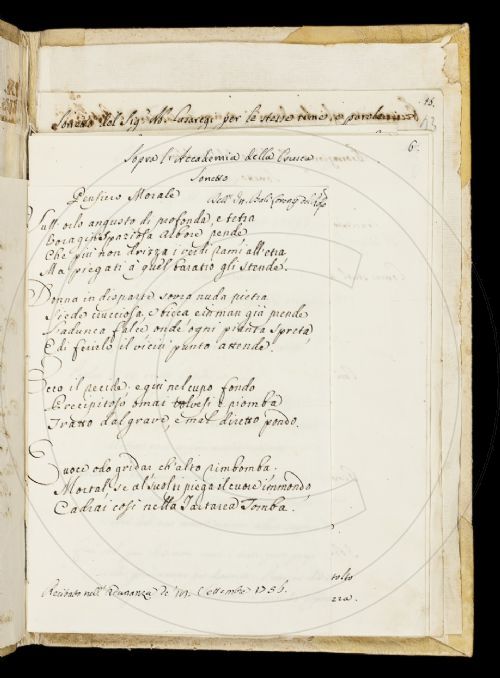 15.
Sonetto del Sig.r Ab. Lazareqi per le stesse rime, e parole
43
6.
Sopra l'Accademia della Crusca
Sonetto
Pensiero Morale Dell'
Sull'orlo angusto di profonda, e tetra
Boragine spaziosa Albore pende
Che più non drizza i verdi rami all'etra,
Ma piegati a quel baratro gli stende.
Donna in disparte sovra nuda pietra
Siede crucciosa, e bieca e in man già prende
L'adunca falce onde ogni pianta spreta,
E di ferirlo il vicin punto attende.
Ecco il recide, e qui nel cupo fondo
Precipitoso omai volvesi e piomba
Tratto dal grave, e mal diretto pondo.
Tuore odo gridar ch'alto rimbomba.
Mortal, se al suol ti piega il cuore immondo,
Cadrai così nella Tartarea Tomba.
Recitato nell' Adunanza de' Settembre 1756.
tolto
rra.